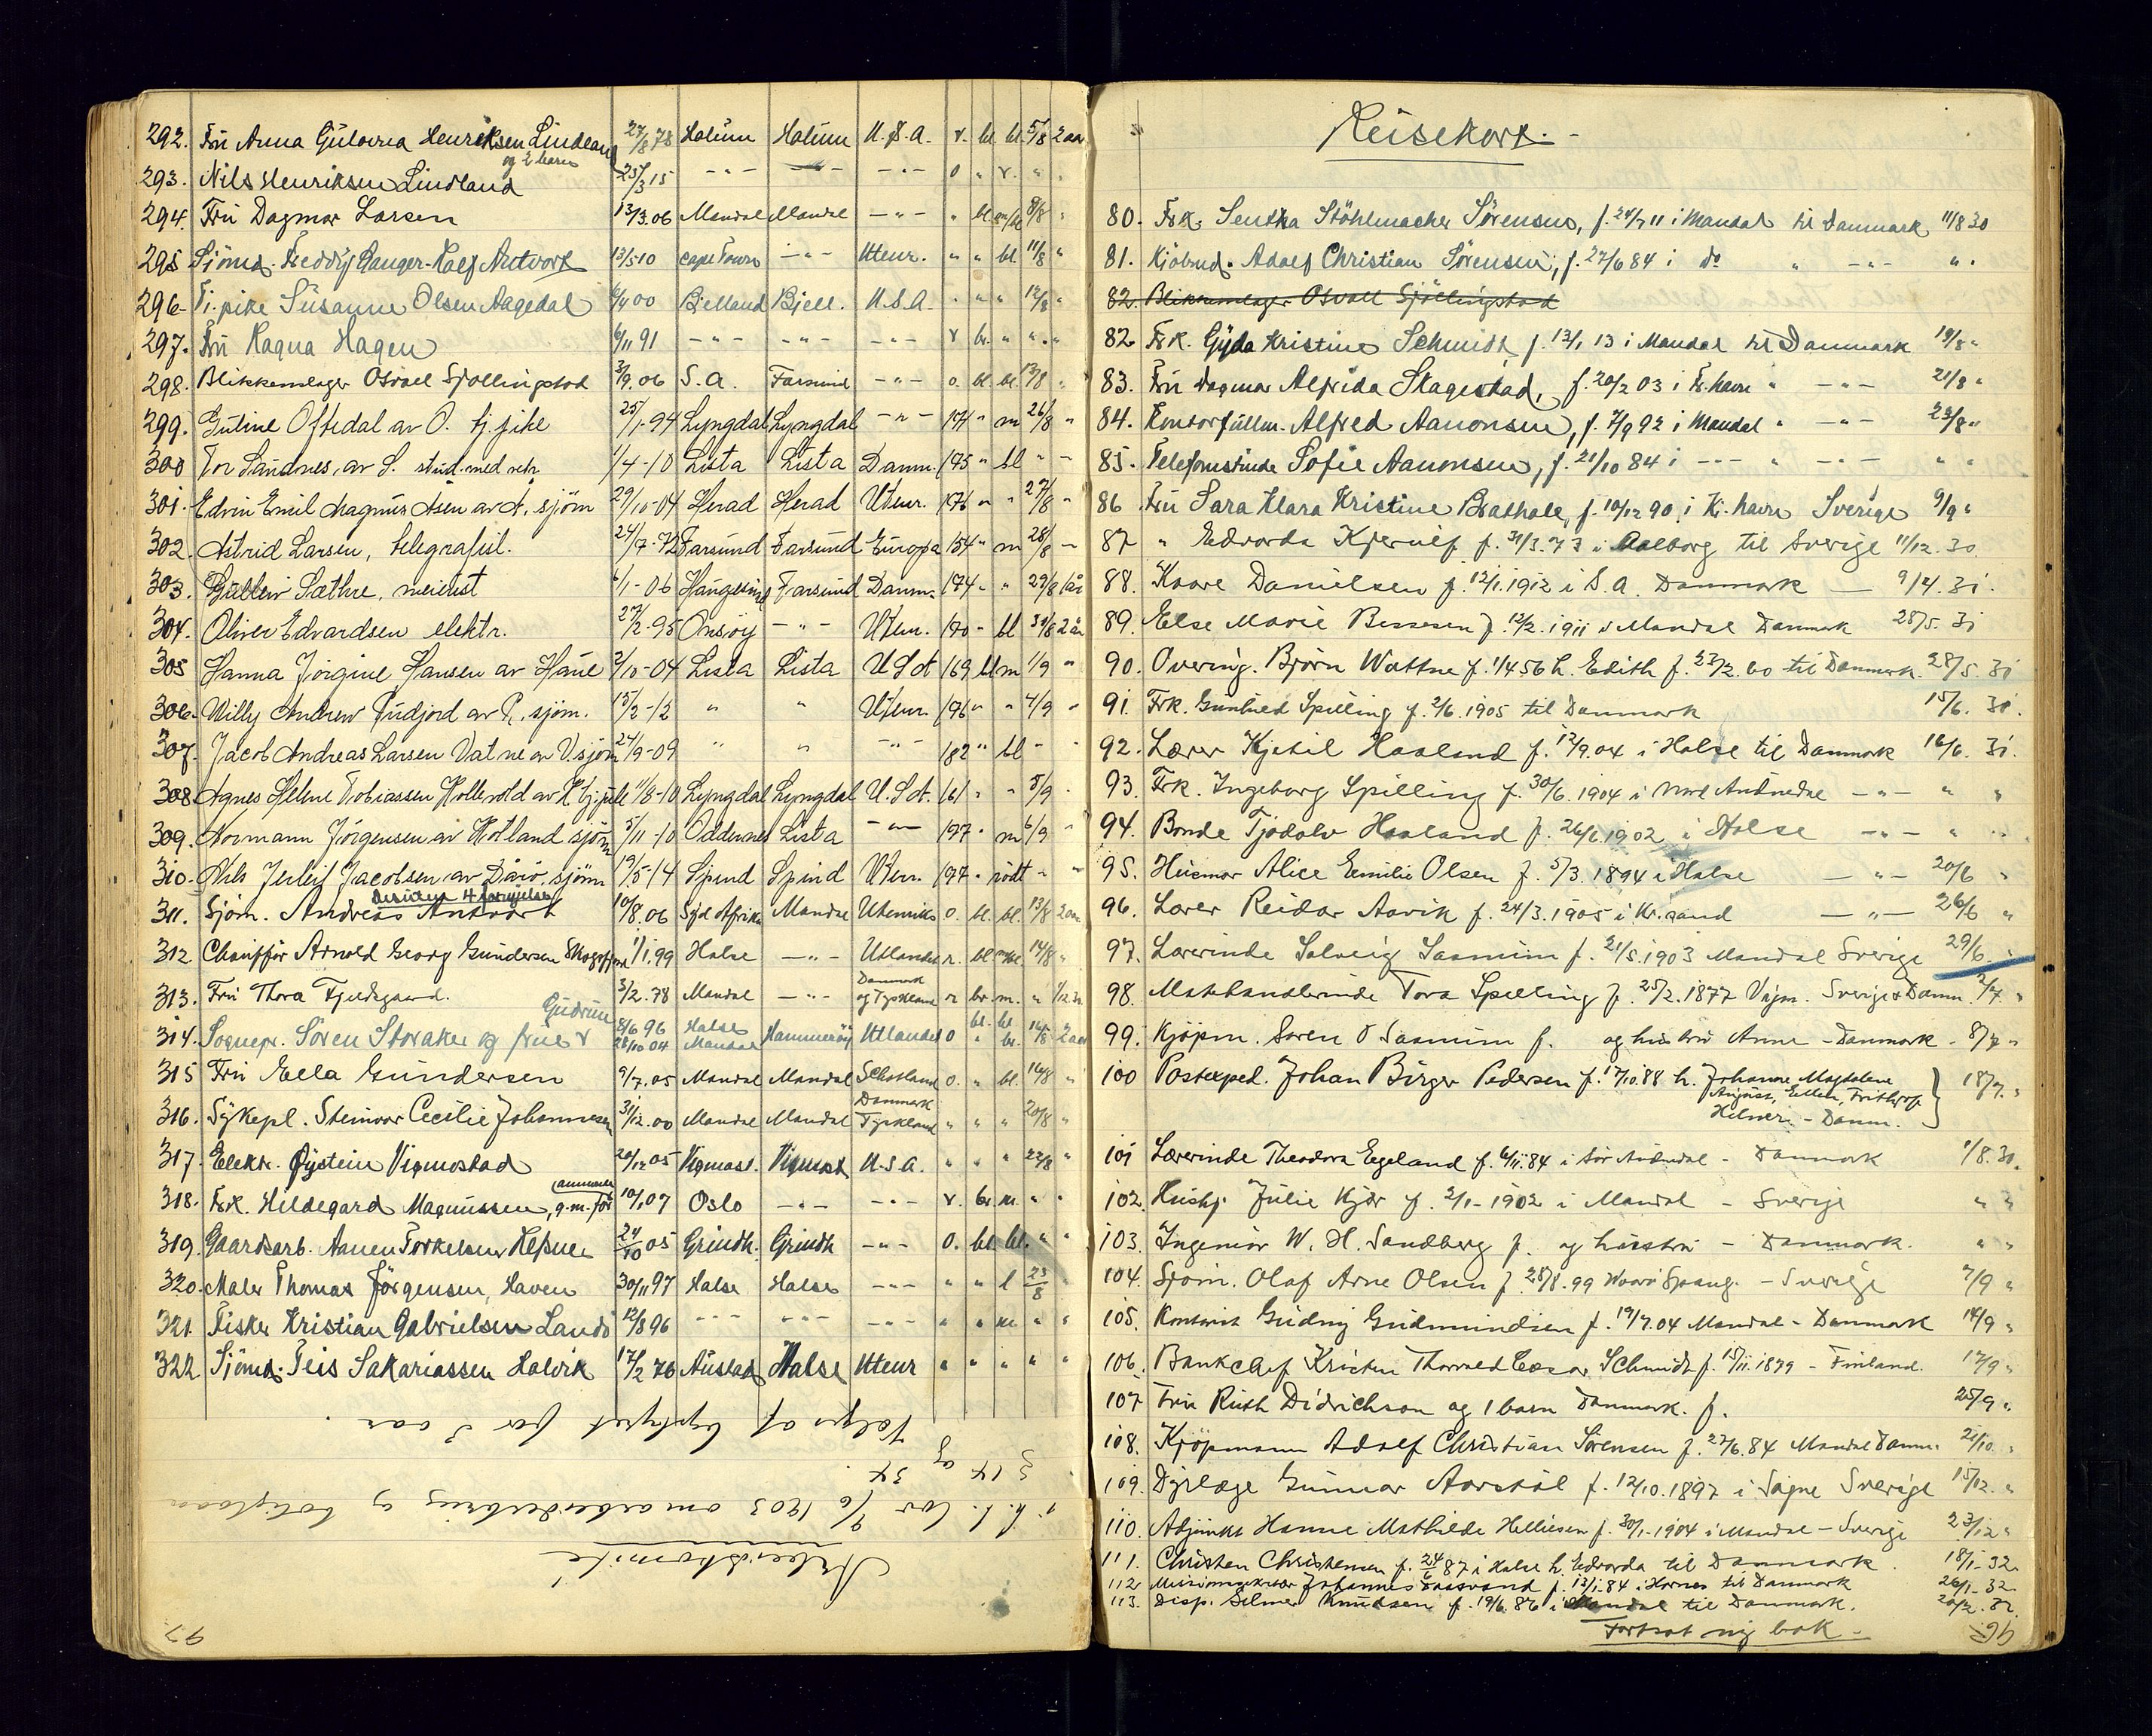 292. Fru Anna Henriksen Lindland 27/8 78 Halum Halum U.S.A. r. bl. bl. 5/8 2 aar
og 2 barn
293. Nils Henriksen Lindland 25/3 15 -"- -"- -"- o " r. " "
294. Fru Dagmar Larsen 13/3.06 Mandal Mandal -"- " bl. 8/8 "
295 Sjömd. Freddy Antvort 13/5-10 Cape Town -"- Uteur. " " bl. 11/8 "
296. Tj. pike Susanne Olsen Aagedal Bjelland Bjell. U.S.A. " " " 12/8 "
297. Fru Ragna Hagen 6/11 91 -"- -"- -"- r br. " " "
298. Blikkenslager Osvall Sjöllingstad S.A. Farsund -"- o. bl. bl. 13/8 "
299. Gutine Oftedal av O. tj. pike 25/1-94 Lyngdal Lyngdal -"- 174 " m 26/8 "
300 Tor Sandnes, av L. stud. med 1/4-10 Lista Lista Danm. 175 " bl " -
301. Edvin Emil Magnus Asen av A. sjöm 29/10-04 Herad Herad Uteur. 176 " " 27/8 "
302. Astrid Larsen, telegrafist. 24/7-72 Farsund Farsund Europa 154 " m 28/8 -
303. Sæthre, meierist 6/1-06 Haugesund Farsund Danm. 174 - " 29/8 1 år
304. Oliver Edvardsen elektr. 27/2-95 Onsöy -"- Uteur. 170 - bl 30/8 2 år
305 Hanna Jörgine Hansen av Haue 2/10-04 Lista Lista U.S.A 169 bl m 1/9 "
306. Willy Andrew Rudjord av R. sjöm. 15/2-12 " " Uteur. 176 " " 4/9 "
307. Jacob Andreas Larsen Vatne av V. sjöm 24/9-09 " " -"- 182 " bl - -
308. Agnes Helene Tobiassen Hollevold av H tj. pike 11/8-10 Lyngdal Lyngdal U.S.A. 161 " " 5/9 "
309. Normann Jörgensen av Hotland sjöm 5/11-10 Oddernes Lista -"- 177 " m 6/9 "
310. Nils Jerleif Jacobsen av Dårö, sjöm 19/5-14 Spind Spind Uteur. 177 - rödt - "
311. Sjöm. Andreas Antvort 10/8.06 Syd Afrika Mandal Utenriks o. bl. bl. 13/8 2 aar
312. Chaufför Arnold Georg Gundersen 1/1.99 Halse -"- Utlandet r. bl 14/8 "
313. Fru Thora Fjeldsgaard. 3/2.78 Mandal -"- Danmark og Tyskland r br. m. "
Gudrun
314. Sognepr. Sören Storaker og frue 8/6 96 Halse Hammeröy Utlandet o bl. bl. 2 aar
28/10 04 Mandal
315 Fru Ella Gundersen 9/7.05 Mandal Mandal Schotland o. " bl. 16/8 "
316. Sykepl. Steinvor Cecilie Johannesen 31/12.00 Mandal Mandal Danmark Tyskland " " " 20/8 "
317. Elekr. Øystein Vigmostad 20/12 05 Vigmost. Vigmost. U.S.A. " " " 22/8 "
318. Frk. Hildegard Magnussen, 10/1 07 Oslo -"- -"- r. br. m. " "
319. Gaardsarb. Aanen Torkelsen 24/10 05 Grindh. Grindh -"- o. bl. bl. " "
320. Maler Thomas Jörgensen, Haven 30/11 97 Halse Halse -"- " " l 23/8 "
321. Fisker Kristian Gabrielsen Landö 12/8 96 -"- -"- -"- " " m. " "
322 Sjömd. Teis Sakariassen Halvik 17/2 76 Austad Halse Uteur " " " " "
Arbeidskomité
i. h. t. lov 9/6 1903 om arbeidsbrug og boliglaan
§ 14 og 34.
Vælges af bystyret for 3 aar.
97
Reisekort.
80. Frk. Sentha Stöhlmacher Sörensen, f. 24/7 11 i Mandal til Danmark 11/8 30
81. Kjöbmd. Adolf Christian Sörensen, f. 27/6 84 i do " -"- " "
82. Blikkenslager Osvall Sjöllingstad
82 Frk. Gyda Kristine Schmidt f. 13/1 13 i Mandal til Danmark 19/8 "
83. Fru Dagmar Alfrida Skagestad, f. 20/2 03 i Fr.havn " -"- 21/8 "
84. Kontorfullm. Alfred Aanonsen, f. 7/9 92 i Mandal " -"- 23/8 "
85. Telefonistinde Sofie Aanonsen, f. 21/10 84 i -"- " -"- " "
86 Fru Sara Klara Kristine Brathole, f. 10/12 90 i Kr.havn Sverige 9/9 "
87 " Edvarda Kjerulf f. 31/3.73 i Aalborg til Sverige 11/12.30.
88. Kaare Danielsen f. 12/1.1912 i S.A. Danmark — 9/4.31.
89. Else Marie Bessesen f. 12/2.1911 i Mandal Danmark 28/5.31
90. Overing. Björn Wattne f. 1/4 56 h. Edith f. 23/2.60 til Danmark. 28/5.31
91. Frk. Gunhild Spilling f. 2/6.1905 til Danmark 15/6.31.
92. Lærer Kjetil Haaland f. 12/9.04 i Halse til Danmark 16/6.31.
93. Frk. Ingeborg Spilling f. 30/6.1904 i Nord Audnedal -"- " "
94. Bonde Tjodolv Haaland f. 26/6 1902 i Halse -"- " "
95. Husmor Alice Emilie Olsen f. 5/3.1894 i Halse -"- 20/6 "
96. Lærer Reidar Aavik f. 24/3.1905 i Kr.sand -"- 26/6 "
97. Lærerinde Solveig Saanum f. 21/5.1903 Mandal Sverige 29/6
98. Mathandlerinde Tora Spilling f. 25/2.1877 Vigm. Sverige & Danm. 2/7. "
99. Kjöpm. Sören O Saanum f. og hustru Anne - Danmark - 8/7 "
100 Postexped. Johan Birger Pedersen f. 17/10.88 h. Johanne Magdalene 18/7. "
August, Ellen, Frithjof
Helmer - Danm.
101 Lærerinde Theodora Eegeland f. 6/11.84 i Sör Audnedal - Danmark 1/8.30.
102. Hushj. Julie Kjær f. 2/1-1902 i Mandal - Sverige " "
103. Ingeniör W. H. Sandberg f. og hustru - Danmark. " "
104. Sjöm. Olaf Arne Olsen f. 28/8.99 - Sverige 7/9 "
105. Kontorist Gudny Gudmundsen f. 19/7.04 Mandal - Danmark 14/9 "
106. Bankchef Kristen Thorvald Cæsar Schmidt f. 15/11.1879 - Finland. 17/9 "
107 Fru Ruth Didrichson og 1 barn Danmark. f. 25/9 "
108. Kjöpmann Adolf Christian Sörensen f. 27/6.84 Mandal Danm. 21/10. "
109. Dyrlæge Gunnar Aarstøl f. 12/10.1897 i Søgne Sverige 15/12. "
110. Adjunkt Hanne Mathilde Helliesen f. 30/1-1904 i Mandal - Sverige 23/12 "
111. Christen Christensen f. 24/6 87 i Halse h. Edvarda til Danmark 18/1-32
112 Missionssekretær Johannes f. 13/1-84 i Hornes til Danmark 26/1-32
113. Disp. Selmer Knudsen f. 19/6.86 i Mandal til Danmark. 20/2.32.
Fortsat ny bok -
96